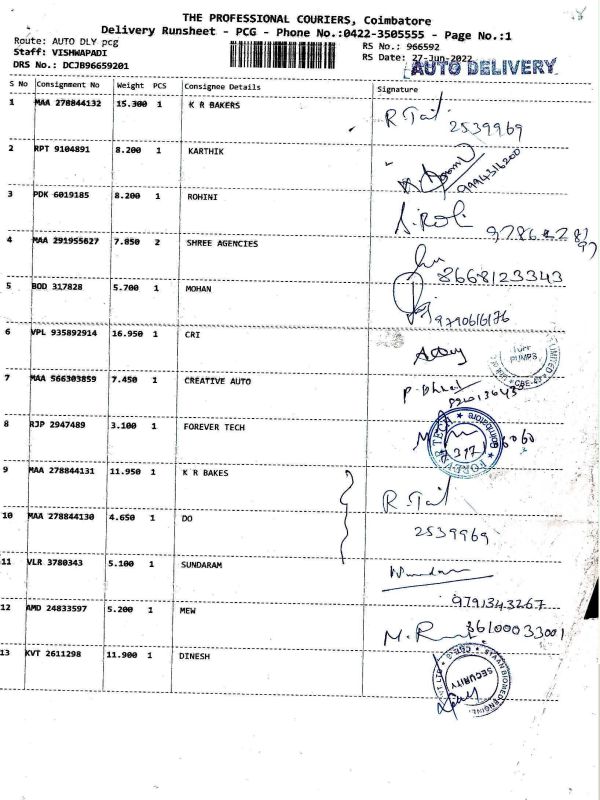 THE PROFESSIONAL COURIERS, Coimbatore
Delivery Runsheet - PCG - Phone No.:0422-3505555 - Page No.:1
Route: AUTO DLY pcg
Staff: VISHWAPADI
DRS No.: DCJB96659201
RS No.: 966592
RS Date: 27-Jun-2022
AUTO DELIVERY
S No Consignment No Weight PCS Consignee Details Signature
1 MAA 278844132 15.300 1 K R BAKERS
2539969
2 RPT 9104891 8.200 1 KARTHIK
9994316200
3 PDK 6019185 8.200 1 ROHINI
4 MAA 291955627 7.850 2 SHREE AGENCIES
8668123343
5 BOD 317828 5.700 1 MOHAN
9790616176
6 VPL 935892914 16.950 1 CRI
PUMPS
7 MAA 566303859 7.450 1 CREATIVE AUTO
8 RJP 2947489 3.100 1 FOREVER TECH
FOREVER TECH
Coimbatore
9 MAA 278844131 11.950 1 K R BAKES
10 MAA 278844130 4.650 1 DO
2539969
11 VLR 3780343 5.100 1 SUNDARAM
9791343267
12 AMD 24833597 5.200 1 MEW
8610003300
13 KVT 2611298 11.900 1 DINESH
SECURITY